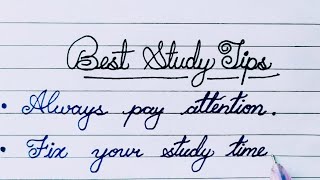 Best Study Tips
• Always pay attention.
• Fix your study time